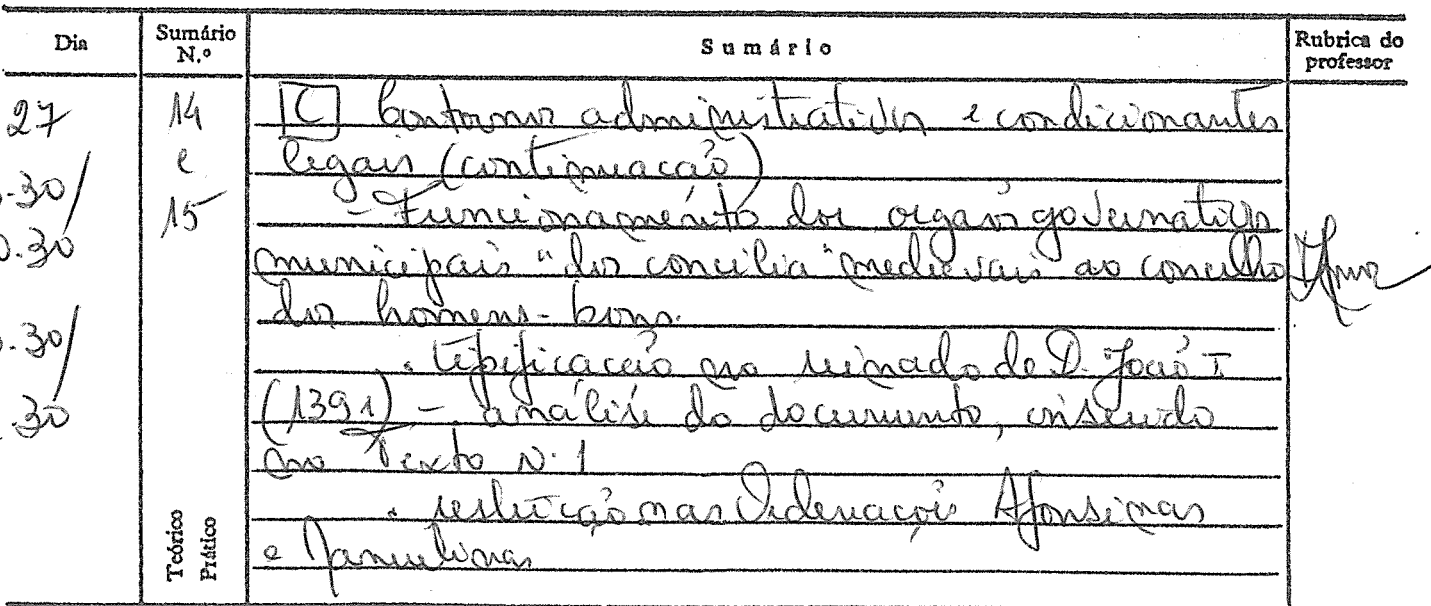 Dia Sumário N.º Sumário Rubrica do professor
27 14 [C] Contornos administrativos e condicionantes
e legais (continuação)
.30/ 15 - Funcionamento dos orgaos governativos
.30 municipais "dos concilia" medievais ao concelho
dos homens-bons.
.30/ . tipificação no reinado de D. João I
.30 (1391) - análise do documento, inserido
no Texto N.1
. restrição nas Ordenações Afonsinas
e Manuelinas
Teórico
Prático